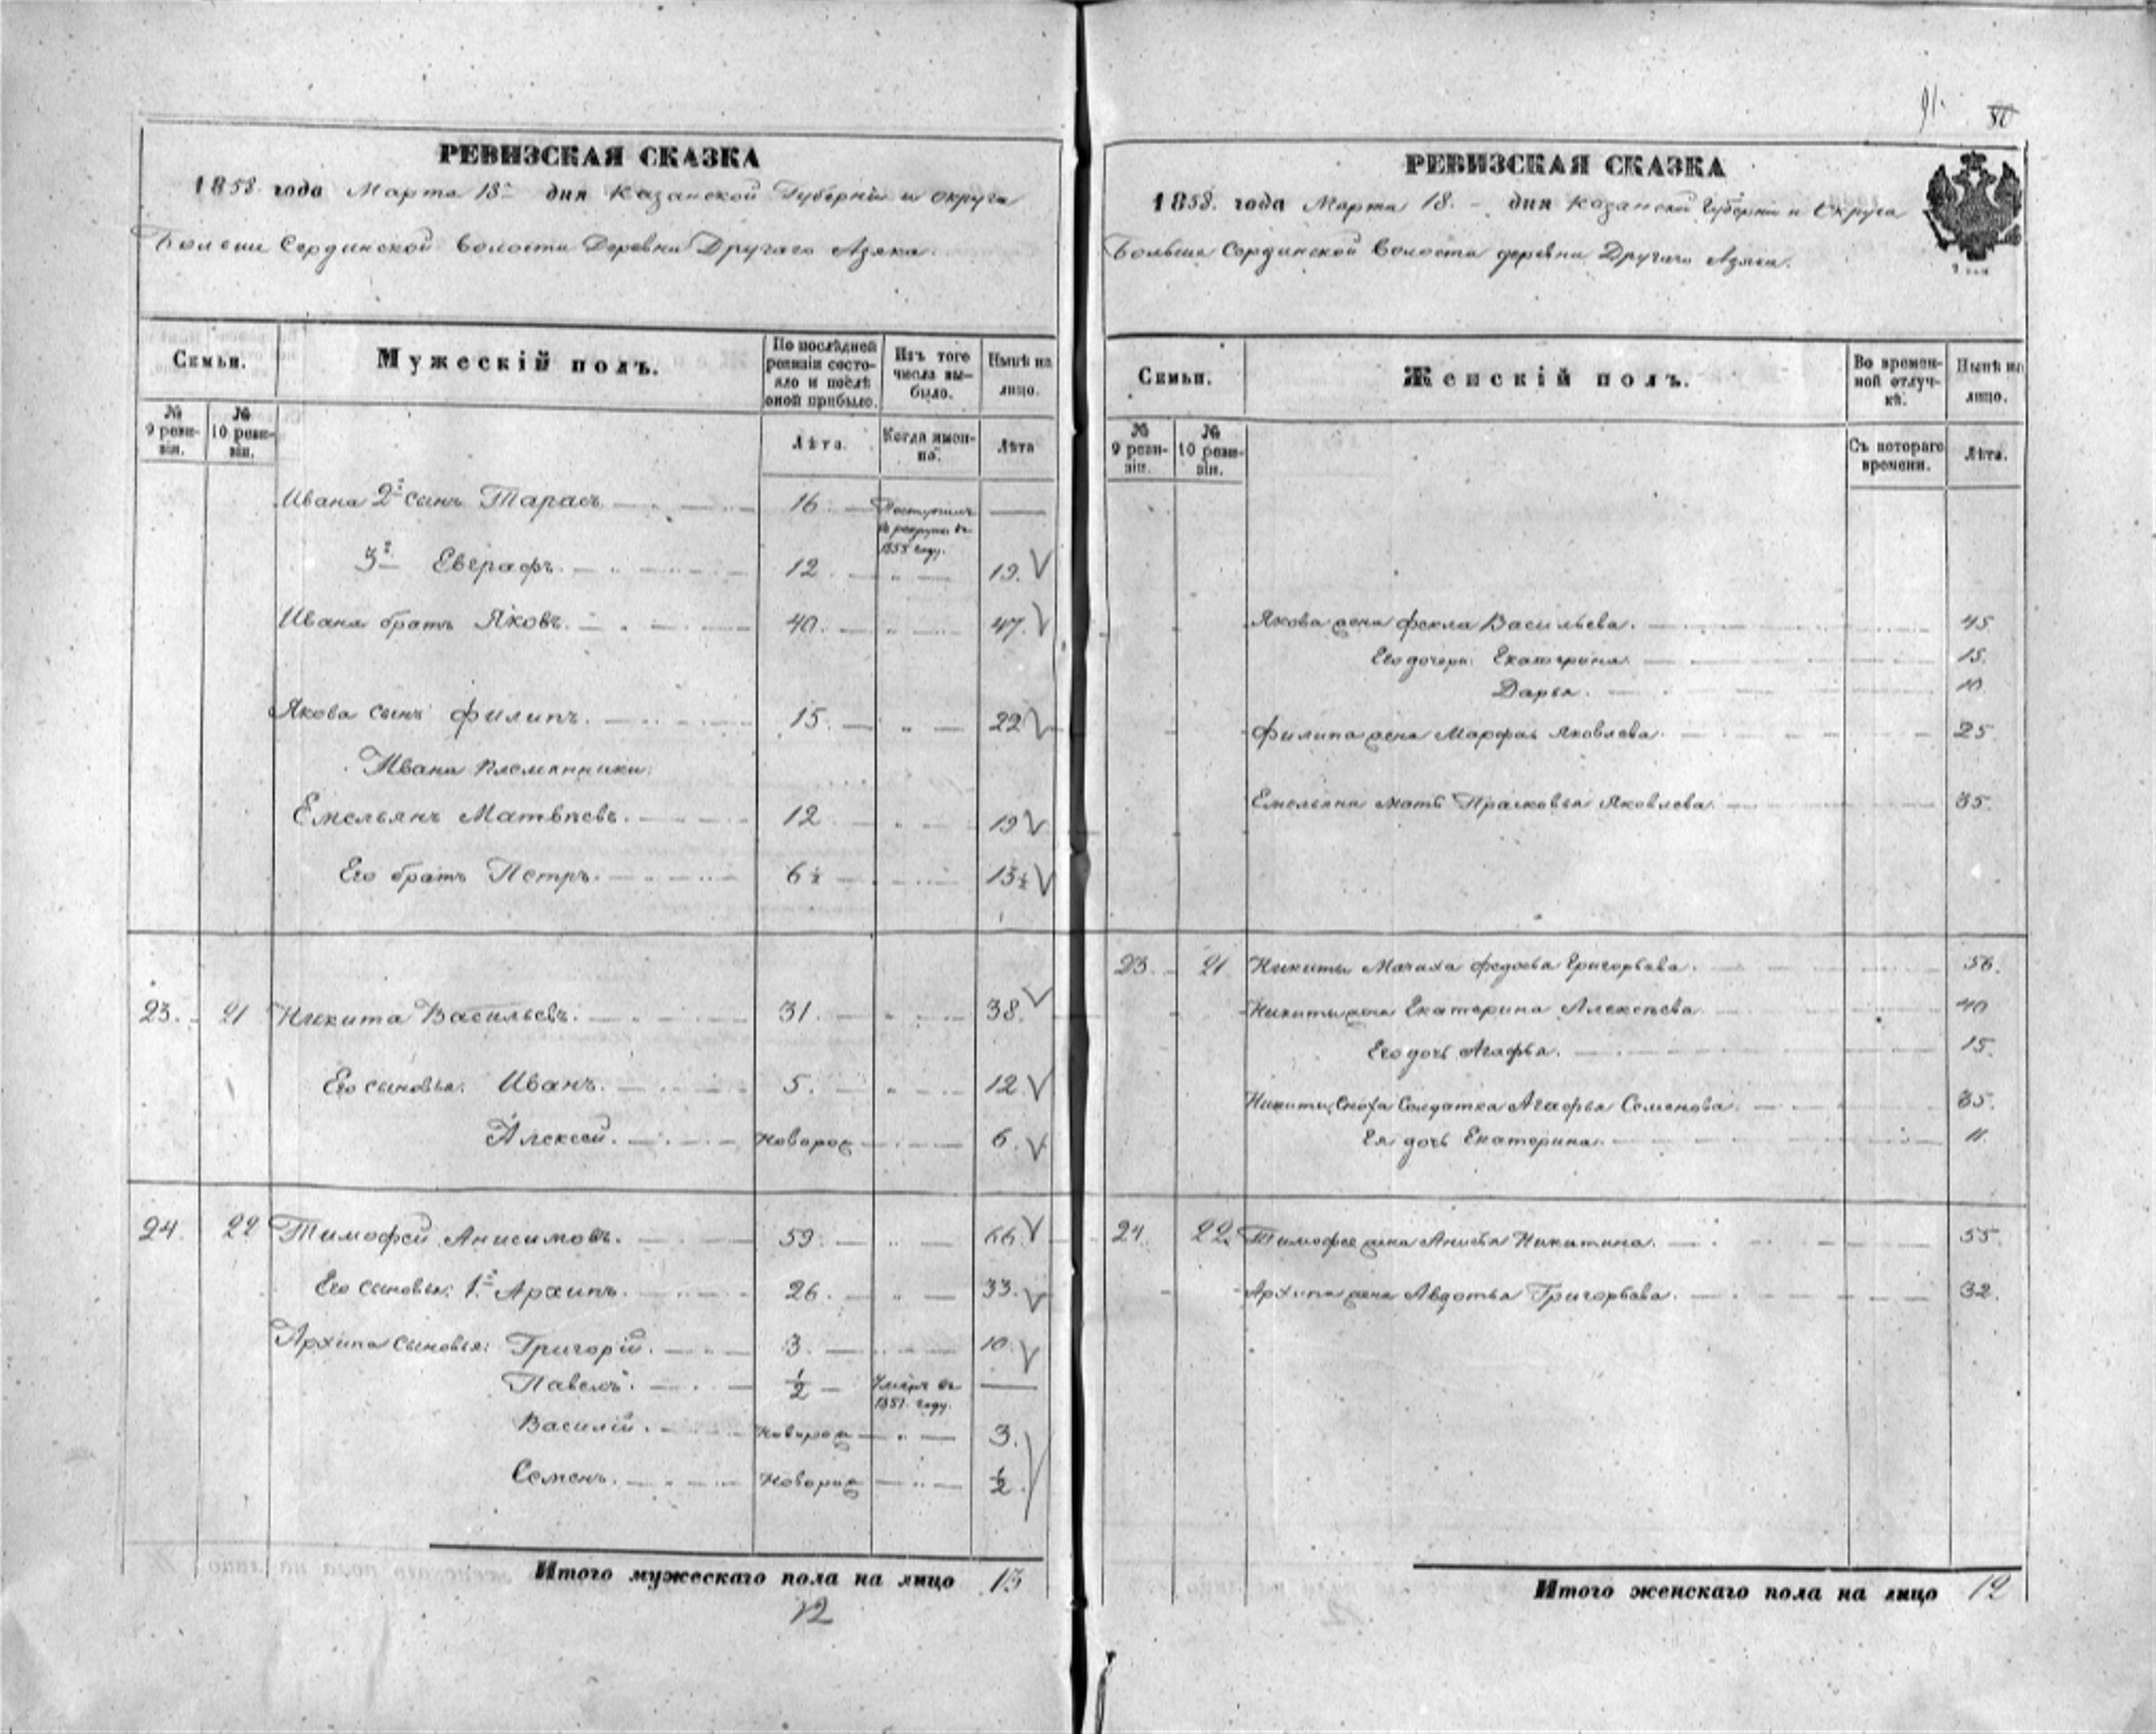 91.
РЕВИЗСКАЯ СКАЗКА
1858. года Марта 18 дня Казанской Губерніи и Округа
Больше Сердинской Волости Деревни Другаго Азяка.
Семьи.
Мужескій полъ.
По послѣдней ревизіи состояло и послѣ оной прибыло.
Изъ того числа выбыло.
Нынѣ на лицо.
№ 9 ревизіи.
№ 10 ревизіи.
Лѣта.
Когда именно.
Лѣта
Ивана 2й сынъ Тарасъ 16 Поступилъ въ рекруты въ 1855 году. —
3й Евграфъ. 12 19.
Ивана братъ Яковъ. 40. 47.
Якова сынъ Филипъ. 15. 22
Ивана племянники:
Емельянъ Матвѣевъ. 12 19
Его братъ Петръ. 6½ 13½
23. 21 Никита Васильевъ. 31. 38.
Его сыновья. Иванъ. 5. 12
Алексей. новорож 6.
24. 22 Тимофей Анисимовъ. 59. 66.
Его сыновья: 1й Архипъ. 26. 33.
Архипа сыновья: Григорій. 3. 10.
Павелъ. ½ Умеръ въ 1851 году. —
Василій. новорож 3.
Семенъ. новорож ½
Итого мужескаго пола на лицо 13
12
РЕВИЗСКАЯ СКАЗКА
1858. года Марта 18. дня Казанской Губерніи и Округа
Больше Сердинской Волости деревни Другаго Азяка.
Семьи.
Женскій полъ.
Во временной отлучкѣ.
Нынѣ на лицо.
№ 9 ревизіи.
№ 10 ревизіи.
Съ котораго времени.
Лѣта.
Якова жена Фекла Васильева. 45.
Его дочери: Екатерина. 15.
Дарья. 10.
Филипа жена Марфа Яковлева. 25.
Емельяна мать Прасковья Яковлева. 35.
23. 21 Никиты Мачиха Федосья Григорьева. 56.
Никиты жена Екатерина Алексѣева. 40
Его дочь Агафья. 15.
Никиты Сноха Солдатка Агафья Семенова. 35.
Ея дочь Екатерина. 11.
24. 22. Тимофея жена Анисья Никитина. 55.
Архипа жена Авдотья Григорьева. 32.
Итого женскаго пола на лицо 12